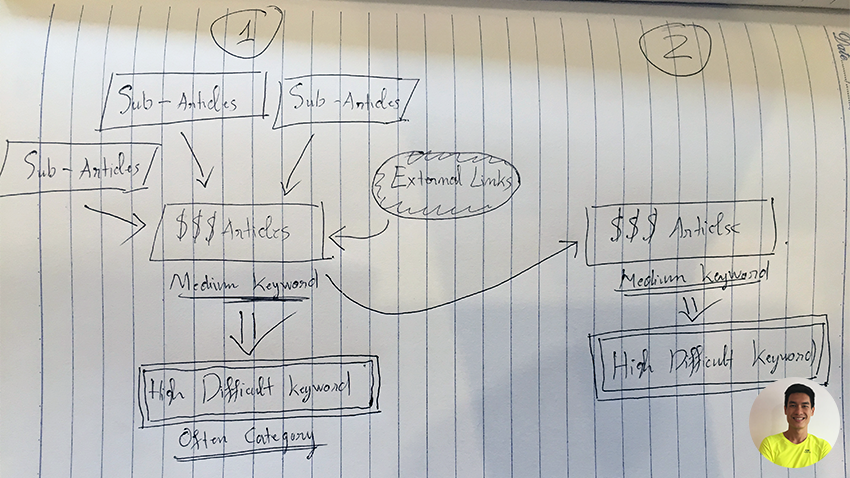 1
2
Date
Sub-Articles
Sub-Articles
Sub-Articles
External Links
$$$ Articles
Medium Keyword
$$$ Articlse
Medium Keyword
High Difficult Keyword
Often Category
High Difficult Keyword